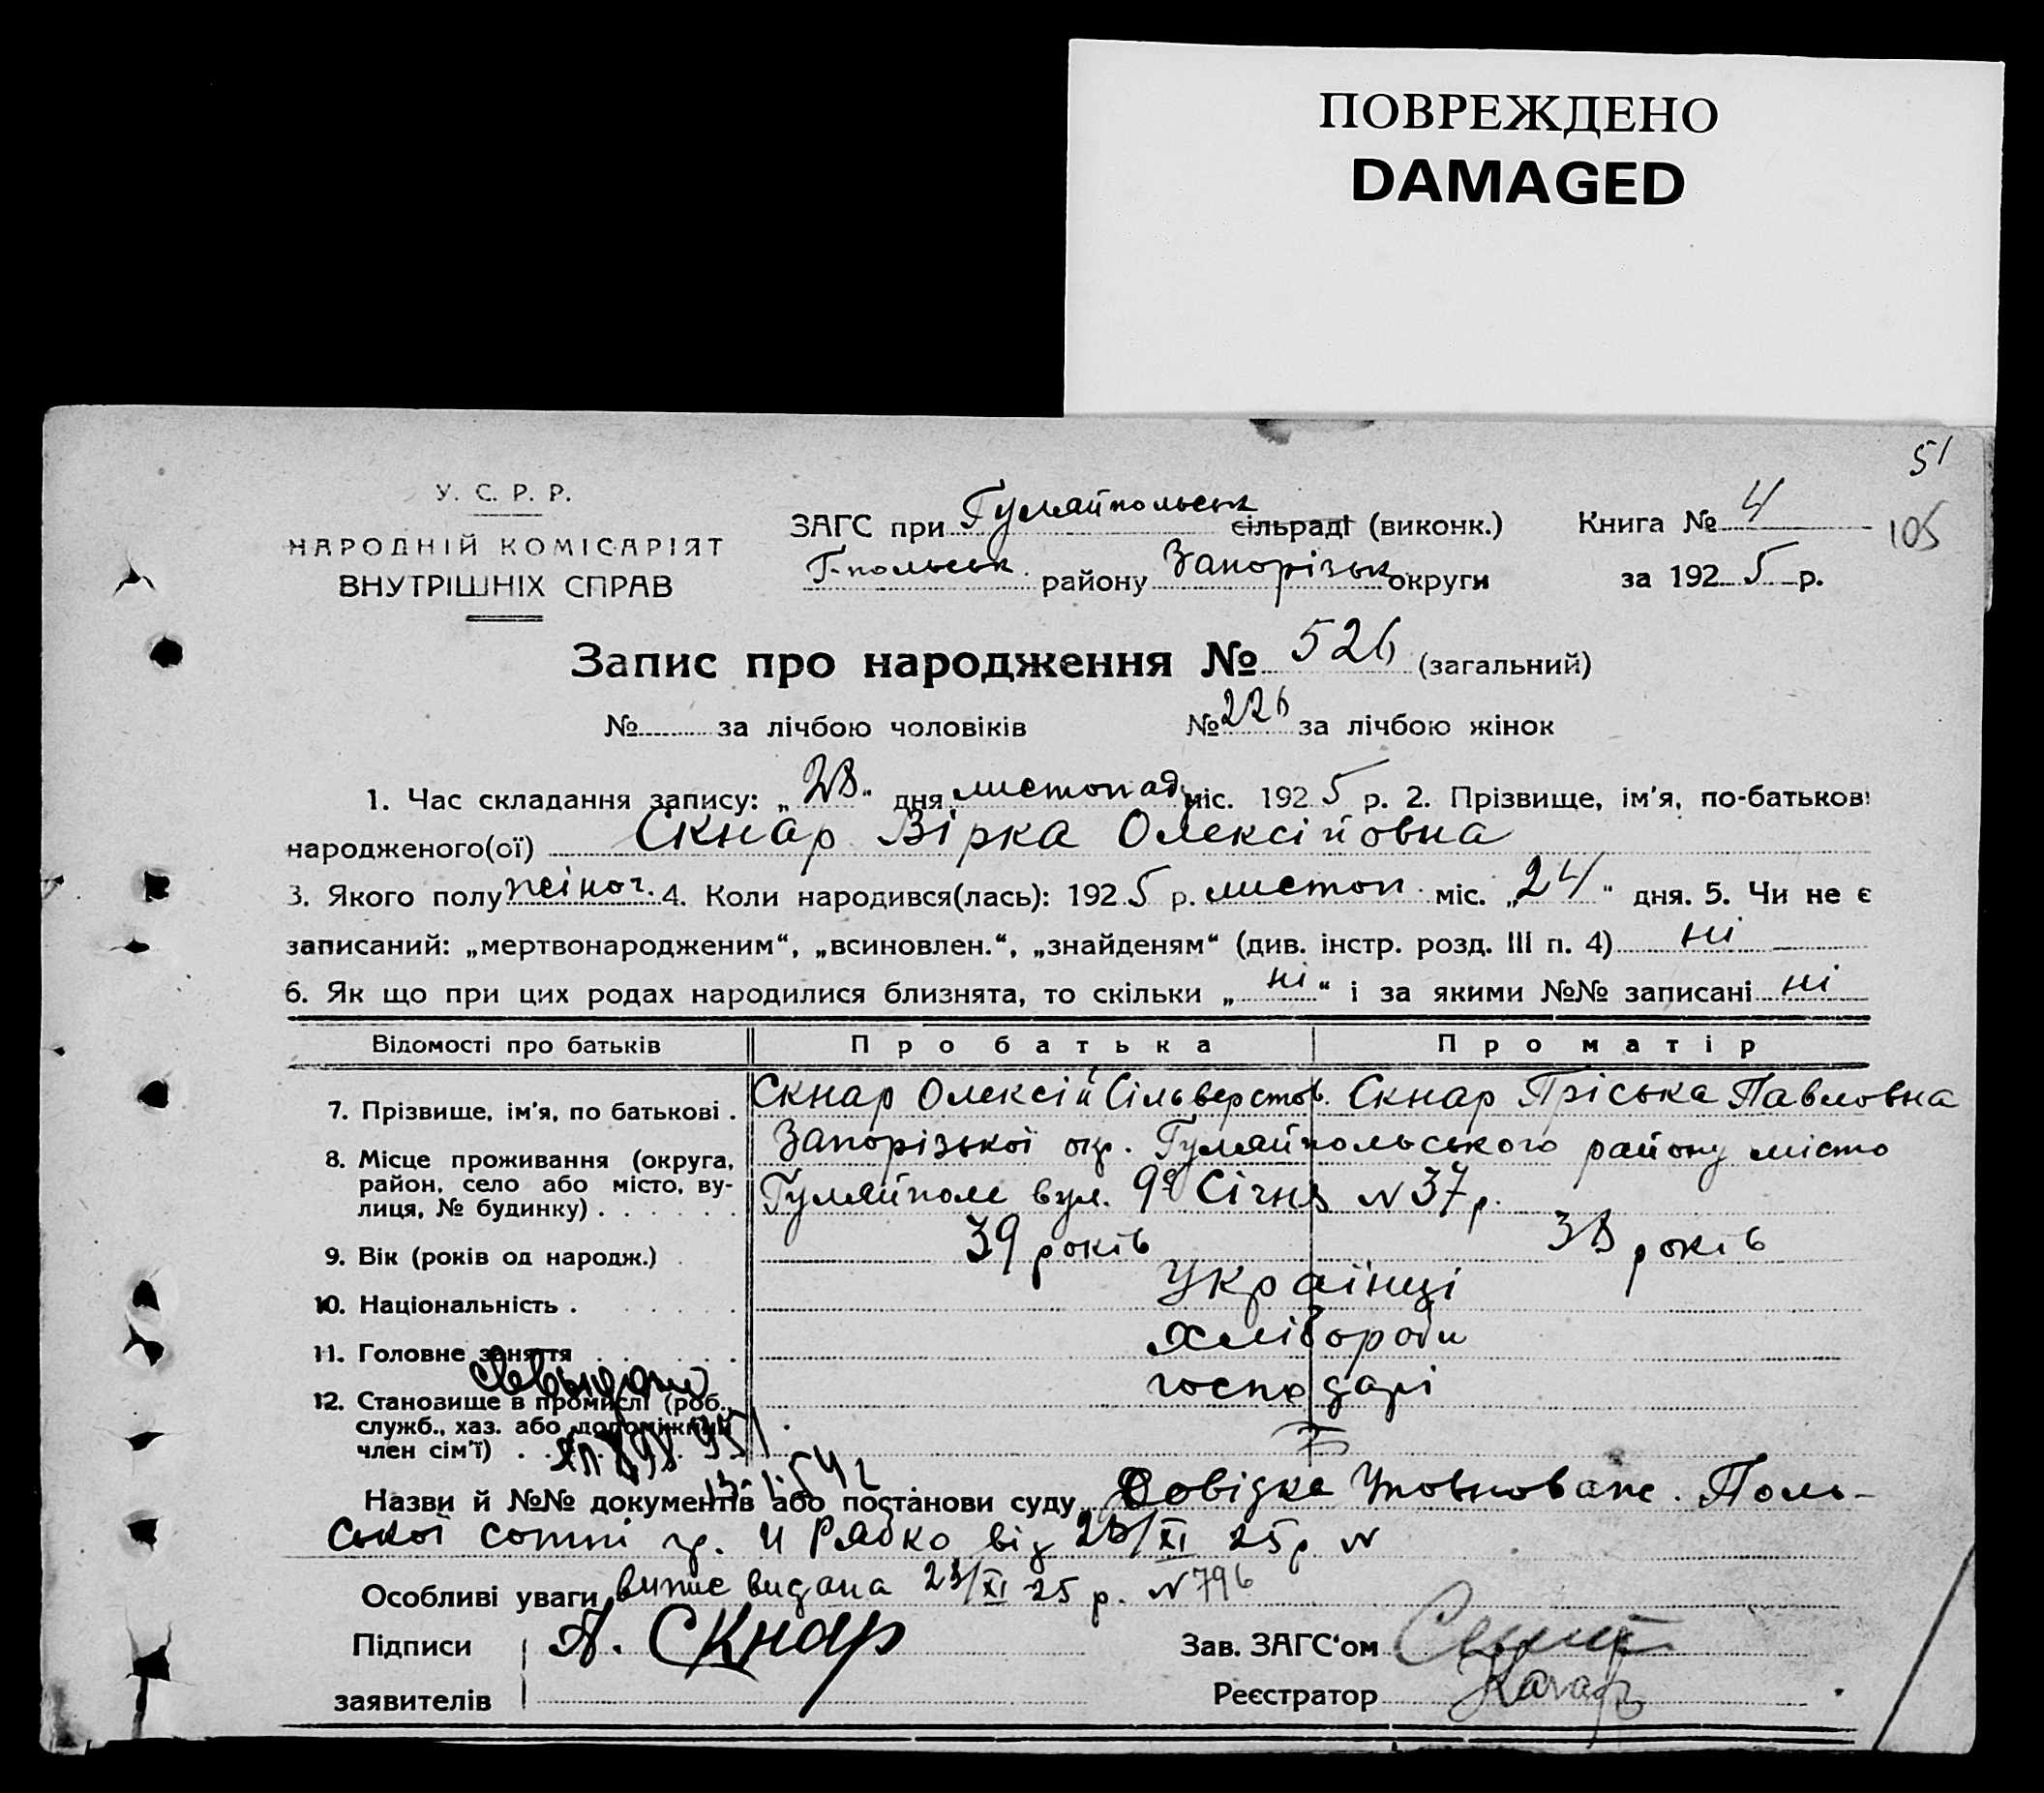 ПОВРЕЖДЕНО
DAMAGED
51
105
У. С. Р. Р.
НАРОДНІЙ КОМІСАРІЯТ
ВНУТРІШНІХ СПРАВ
ЗАГС при Гуляйпольськ сільраді (виконк.) Книга № 4
Г-польськ району Запорізьк округи за 1925 р.
Запис про народження № 526 (загальний)
№ за лічбою чоловіків № 226 за лічбою жінок
1. Час складання запису: „28“ дня листопаду міс. 1925 р. 2. Прізвище, ім'я, по-батькові
народженого(ої) Скнар Вірка Олексійовна
3. Якого полу жіноч. 4. Коли народився(лась): 1925 р. листоп. міс. „24“ дня. 5. Чи не є
записаний: „мертвонародженим“, „всиновлен.“, „знайденям“ (див. інстр. розд. III п. 4) ні
6. Як що при цих родах народилися близнята, то скільки „ні“ і за якими №№ записані ні
Відомості про батьків Про батька Про матір
7. Прізвище, ім'я, по батькові . Скнар Олексій Сільверстов. Скнар Пріська Павловна
8. Місце проживання (округа, район, село або місто, ву-лиця, № будинку) . . . . . .
Запорізької окр. Гуляйпольського району місто
Гуляйполе вул. 9го Січня № 37 р.
9. Вік (років од народж.) . 39 років 38 років
10. Національність . Українці
11. Головне заняття хлібороби
12. Становище в промислі (роб., служб., хаз. або допоміжний член сім'ї) . . господарі
Назви й №№ документів або постанови суду Довідка Уповноваж. Поль-
ської сотні гр. И Рябко від 28/XI 25 р. №
Особливі уваги випис видана 28/XI 25 р. № 796
Підписи А. Скнар Зав. ЗАГС'ом
заявителів Реєстратор